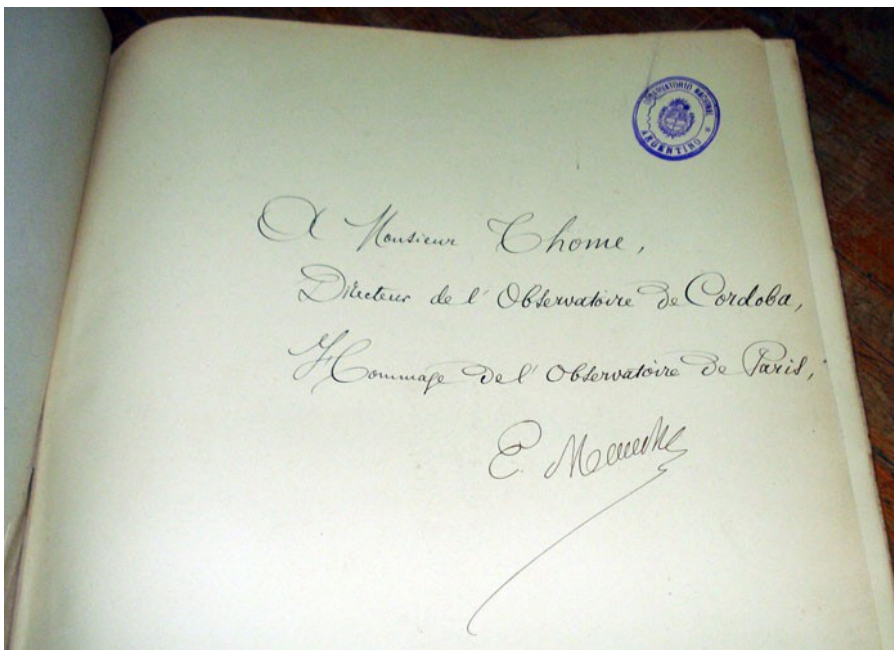 OBSERVATORIO NACIONAL
ARGENTINO
A Monsieur Thome,
Directeur de l'Observatoire de Cordoba,
Hommage de l'Observatoire de Paris,
E.